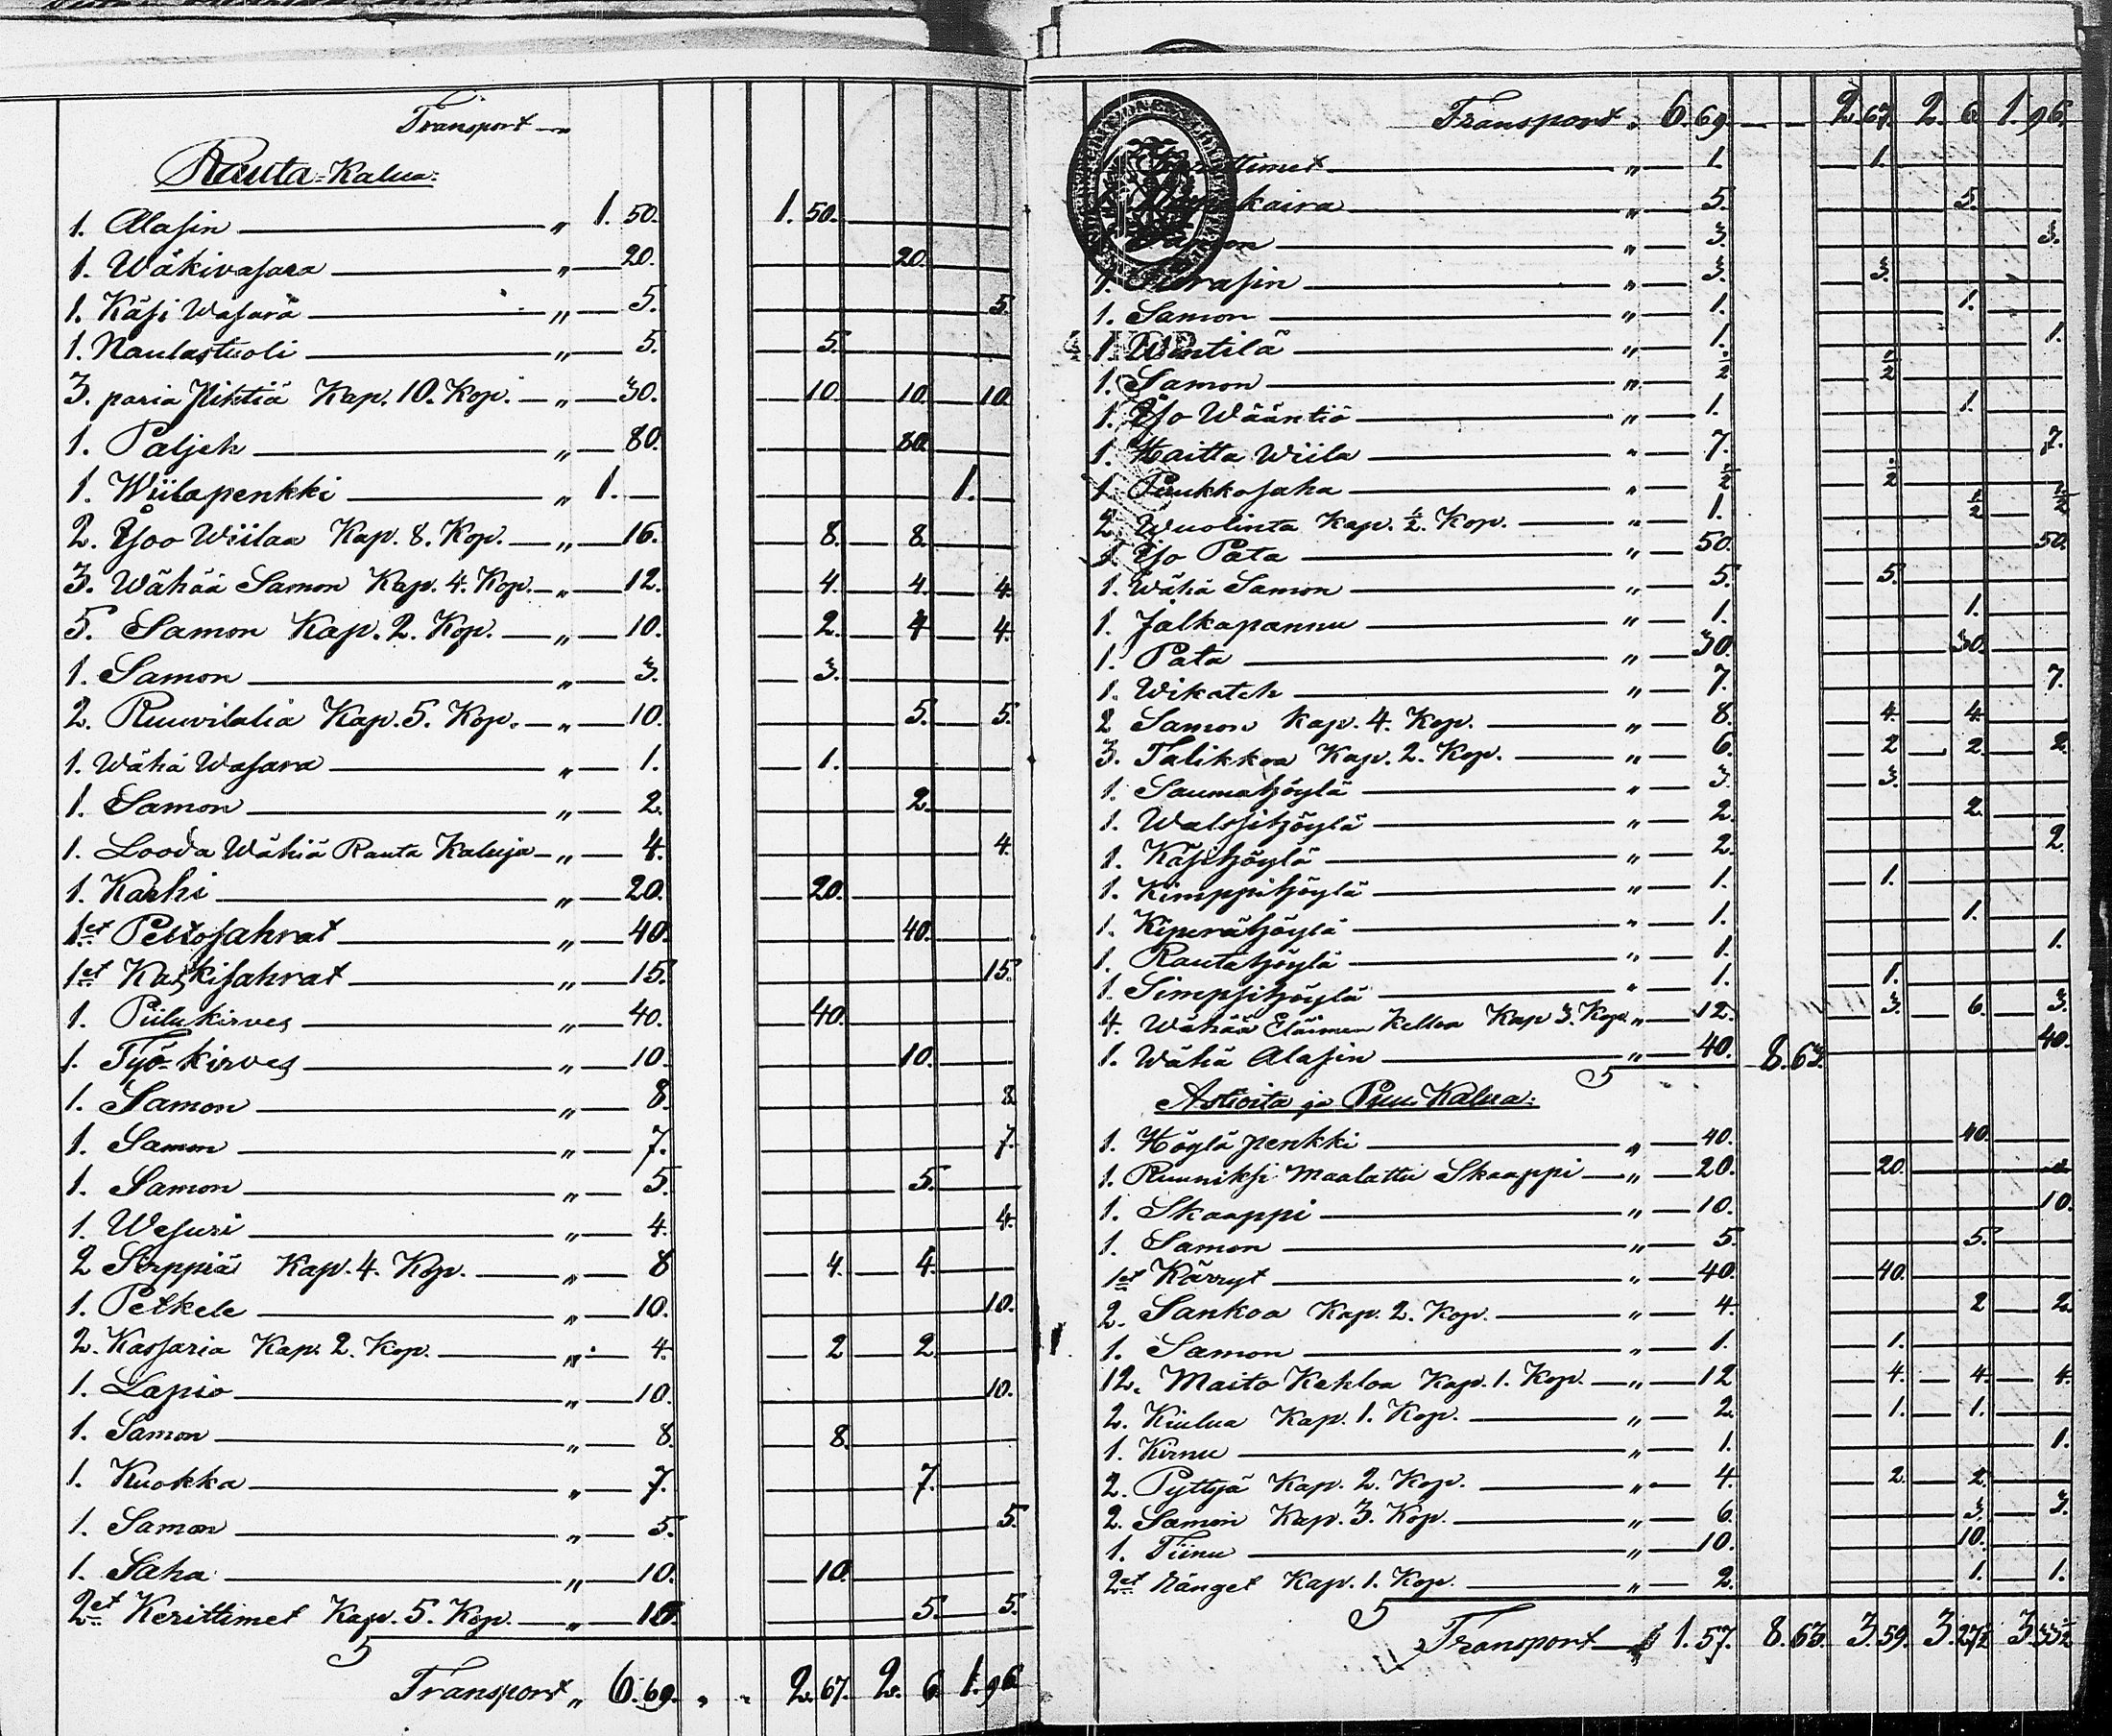 Transport „
Rauta-Kalua:
1. Alasin „ 1. 50. 1. 50.
1. Wäkivasara „ 20. 20.
1. Käsi Wasara „ 5. 5.
1. Naulastuoli „ 5. 5.
3. paria Pihtiä Kap. 10. Kop. „ 30. 10 10. 10.
1. Paljeh „ 80. 80.
1. Wiilapenkki „ 1. 1.
2. Ysoo Wiilaa Kap. 8. Kop. „ 16. 8. 8.
3. Wähää Samon Kap. 4. Kop. „ 12. 4. 4. 4.
5. Samon Kap. 2. Kop. „ 10. 2. 4 4.
1. Samon „ 3. 3.
2. Ruuvilalia Kap. 5. Kop. „ 10. 5. 5.
1. Wähä Wasara „ 1. 1.
1. Samon „ 2. 2.
1. Looda Wähiä Rauta Kaluja „ 4. 4.
1. Karhi „ 20. 20.
1et Peltosahrat „ 40. 40.
1et Kaskisahrat „ 15. 15.
1. Piilukirves „ 40. 40.
1. Työ-kirves „ 10. 10.
1. Samon „ 8. 8.
1. Samon „ 7. 7.
1. Samon „ 5. 5.
1. Wesuri „ 4. 4.
2 Sirppiä Kap. 4. Kop. „ 8 4. 4.
1. Petkele „ 10. 10.
2. Kassaria Kap. 2. Kop. „ 4. 2 2.
1. Lapio „ 10. 10.
1. Samon „ 8. 8.
1. Kuokka „ 7. 7.
1. Samon „ 5. 5.
1. Saha „ 10. 10.
2et Kerittimet Kap. 5. Kop. „ 10. 5. 5.
Transport „ 6. 69. „ „ 2. 67. 2. 6. 1. 96.
Transport „ 6. 69. 2. 67. 2. 6. 1. 96.
„ 1. 1.
kaira „ 5. 5.
„ 3. 3.
1. „ 3. 3.
1. Samon „ 1. 1.
1. Wintilä „ 1. 1.
1. Samon „ ½ ½
1. Yso Wääntiö „ 1. 1.
1. Haitta Wiila „ 7. 7.
1. Puukkosaha „ ½ ½
2. Wuolinta Kap. ½. Kop. „ 1. ½ ½
1. Yso Pata „ 50. 50.
1. Wähä Samon „ 5. 5.
1. Jalkapannu „ 1. 1.
1. Pata „ 30. 30.
1. Wikateh „ 7. 7.
2 Samon Kap. 4. Kop. „ 8. 4. 4.
3. Talikkoa Kap. 2. Kop. „ 6. 2 2. 2.
1. Saumahöylä „ 3. 3.
1. Walssihöylä „ 2. 2.
1. Käsihöylä „ 2. 2.
1. Kimppihöylä „ 1. 1.
1. Kiperähöylä „ 1. 1.
1. Rautahöylä „ 1. 1.
1. Simpsihöylä „ 1. 1.
4. Wähää Eläimen Kelloa Kap 3. Kop. „ 12. 3. 6. 3.
1. Wähä Alasin „ 40. 8. 63. 40.
Astioita ja Puu Kalua:
1. Höyläpenkki „ 40. 40.
1. Ruuniksi Maalattu Skaappi „ 20. 20.
1. Skaappi „ 10. 10.
1. Samon „ 5. 5.
1et Kärryt „ 40. 40.
2. Sankoa Kap. 2. Kop. „ 4. 2 2.
1. Samon „ 1. 1.
12. Maito Kehloa Kap. 1. Kop. „ 12 4. 4. 4.
2. Kiulua Kap. 1. Kop. „ 2. 1. 1.
1. Kirnu „ 1. 1.
2. Pyttyä Kap. 2. Kop. „ 4. 2. 2.
2. Samon Kap. 3. Kop. „ 6. 3. 3.
1. Tiinu „ 10. 10.
2et Länget Kap. 1. Kop. „ 2. 1. 1.
Transport 1. 57. 8. 63. 3. 59. 3. 27½ 3. 33½